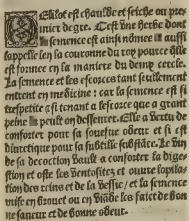 Elilot est chaulde et seiche ou pre
mier degre. Cest vne herbe dont
la semence est ainsi nõmee aussi
lappelle len la couronne du roy pource qlle
est formee en la maniere du demy cercle.
La semence et les escorces tant seullement
entrent en medicine: car la semence est si
trespetite q̃ si tenant a lescorce que a grant
peine peult on dessemer. Elle a vertu de
conforter pour sa souefue odeur et si est
diuretique pour sa subtille substãce. Le vin
de sa decoction vault a conforter la diges
tion et oste les ventositez et ouure lopilas
tion des reins et de la vessie / et la semence
mise en brouet ou en viãde les faict de bon
ne saueur et de bonne odeur.